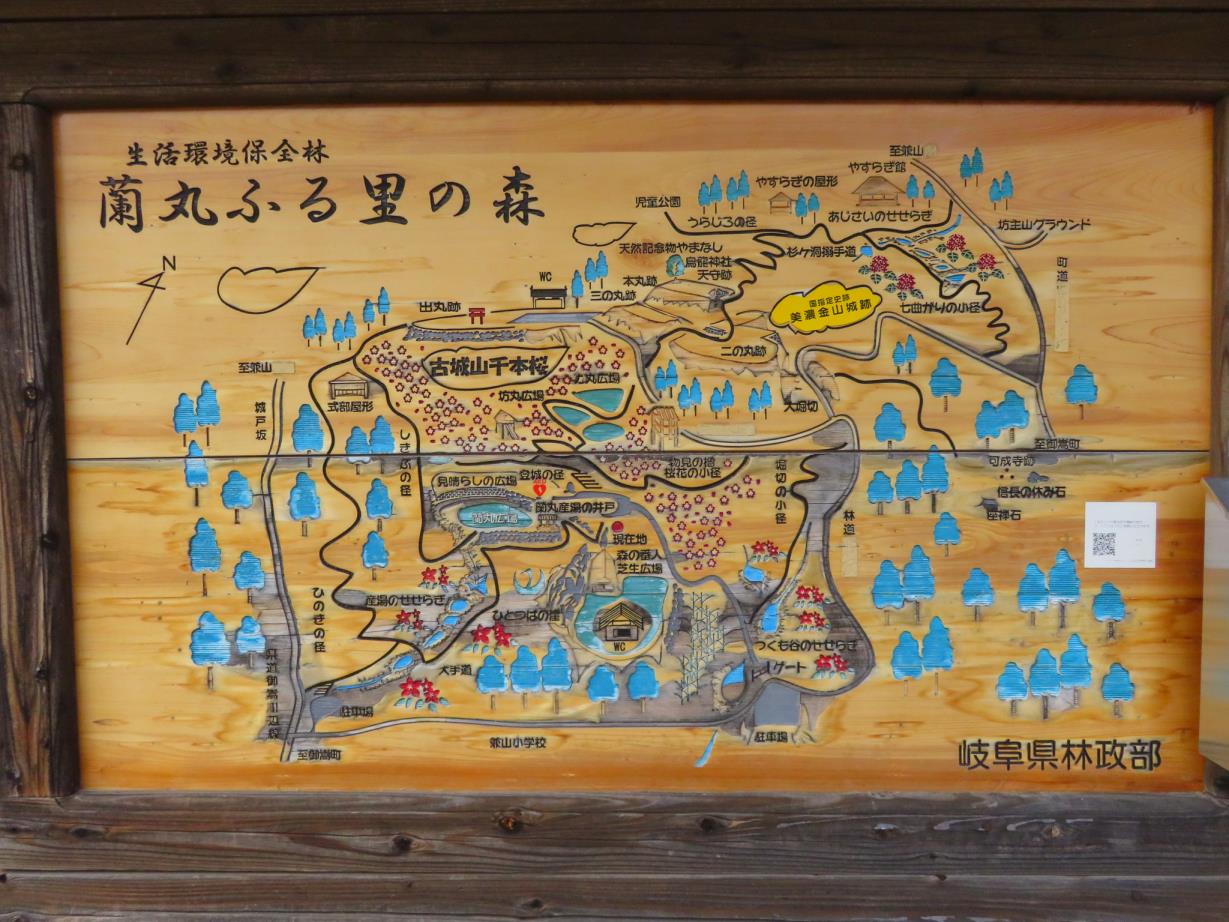 生活環境保全林
蘭丸ふる里の森
N
至兼山
やすらぎ館
やすらぎの屋形
児童公園
うらじろの径
あじさいのせせらぎ
坊主山グラウンド
天然記念物やまなし
杉ヶ洞搦手道
烏龍神社
天守跡
本丸跡
町道
WC
三の丸跡
出丸跡
国指定史跡
美濃金山城跡
七曲がりの小径
二の丸跡
古城山千本桜
至兼山
力丸広場
坊丸広場
大堀切
式部屋形
城戸坂
しきぶの径
至御嵩町
可成寺跡
物見の櫓
桜花の小径
登城の径
見晴らしの広場
堀切の小径
信長の休み石
座禅石
蘭丸産湯の井戸
蘭丸広場
林道
現在地
森の番人
芝生広場
産湯のせせらぎ
ひとつばの崖
ひのきの径
WC
つくも谷のせせらぎ
大手道
ゲート
県道御嵩川辺線
駐車場
駐車場
兼山小学校
至御嵩町
岐阜県林政部